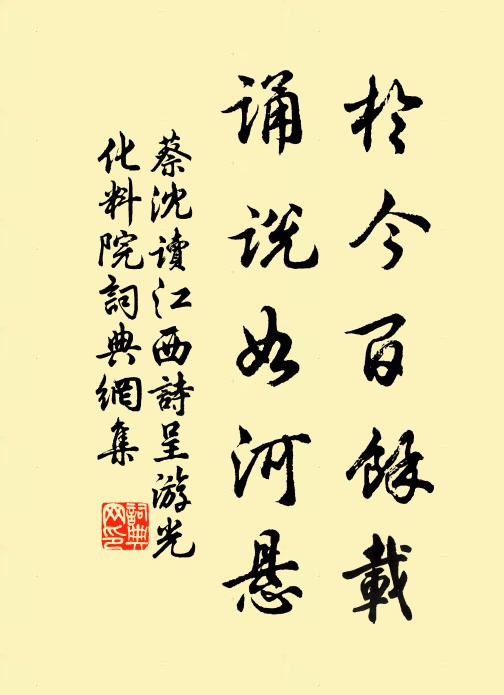 於今百餘載
诵说如河悬
蔡沈讀江西詩呈游光
化料院詞典網集
詞典网印